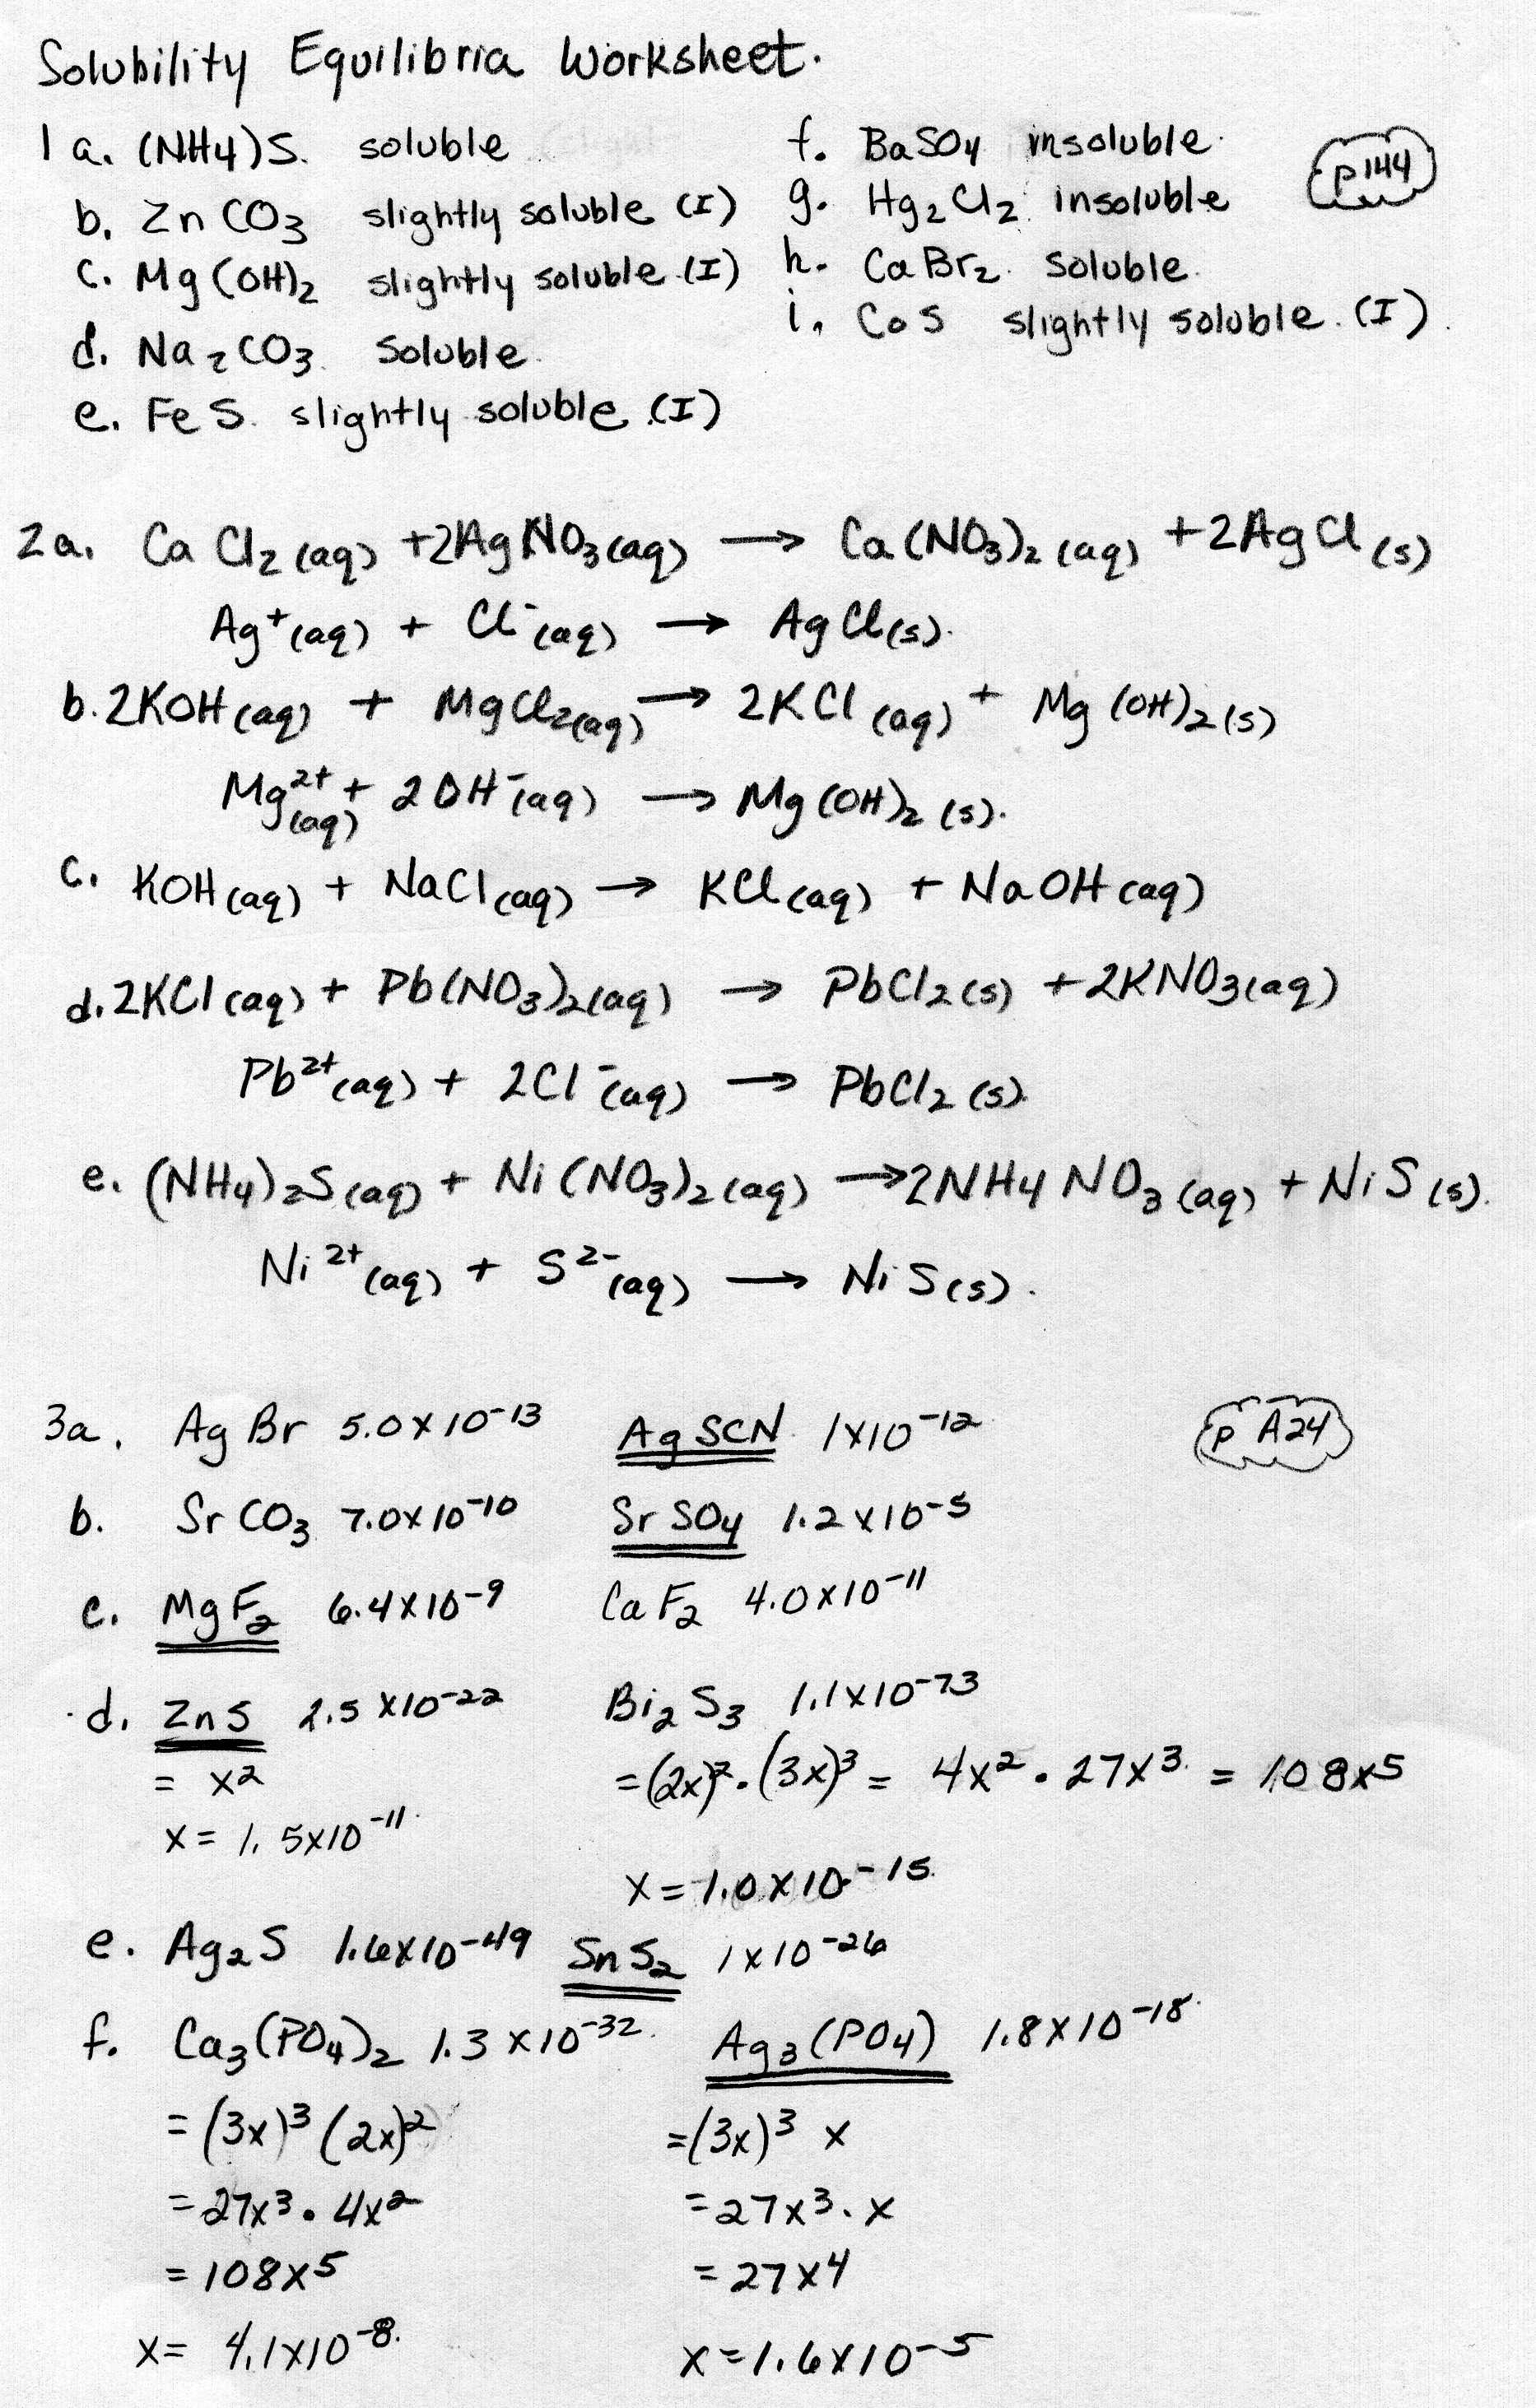 Solubility Equilibria Worksheet.
1 a. (NH4)S. soluble
b. ZnCO3 slightly soluble (I)
c. Mg(OH)2 slightly soluble (I)
d. Na2CO3. Soluble.
e. FeS. slightly soluble (I)
f. BaSO4 insoluble.
g. Hg2Cl2. insoluble
h. CaBr2. Soluble.
i. CoS slightly soluble. (I).
p144
2a. CaCl2(aq) + 2AgNO3(aq) → Ca(NO3)2(aq) + 2AgCl(s)
Ag+(aq) + Cl-(aq) → AgCl(s).
b. 2KOH(aq) + MgCl2(aq) → 2KCl(aq) + Mg(OH)2(s)
Mg2+(aq) + 2OH-(aq) → Mg(OH)2(s).
c. KOH(aq) + NaCl(aq) → KCl(aq) + NaOH(aq)
d. 2KCl(aq) + Pb(NO3)2(aq) → PbCl2(s) + 2KNO3(aq)
Pb2+(aq) + 2Cl-(aq) → PbCl2(s).
e. (NH4)2S(aq) + Ni(NO3)2(aq) → 2NH4NO3(aq) + NiS(s).
Ni2+(aq) + S2-(aq) → NiS(s).
3a. AgBr 5.0x10-13 AgSCN. 1x10-12
p A24
b. SrCO3 7.0x10-10 SrSO4 1.2x10-5
c. MgF2 6.4x10-9 CaF2 4.0x10-11
d. ZnS 2.5x10-22 Bi2S3 1.1x10-73
= x2 =(2x)2.(3x)3 = 4x2 . 27x3. = 108x5
x = 1.5x10-11.
x = 1.0x10-15.
e. Ag2S 1.6x10-49 SnS2 1x10-26
f. Ca3(PO4)2 1.3x10-32. Ag3(PO4) 1.8x10-18.
= (3x)3 (2x)2 =(3x)3 x
= 27x3 . 4x2 = 27x3 . x
= 108x5 = 27x4
x = 4.1x10-8. x = 1.6x10-5